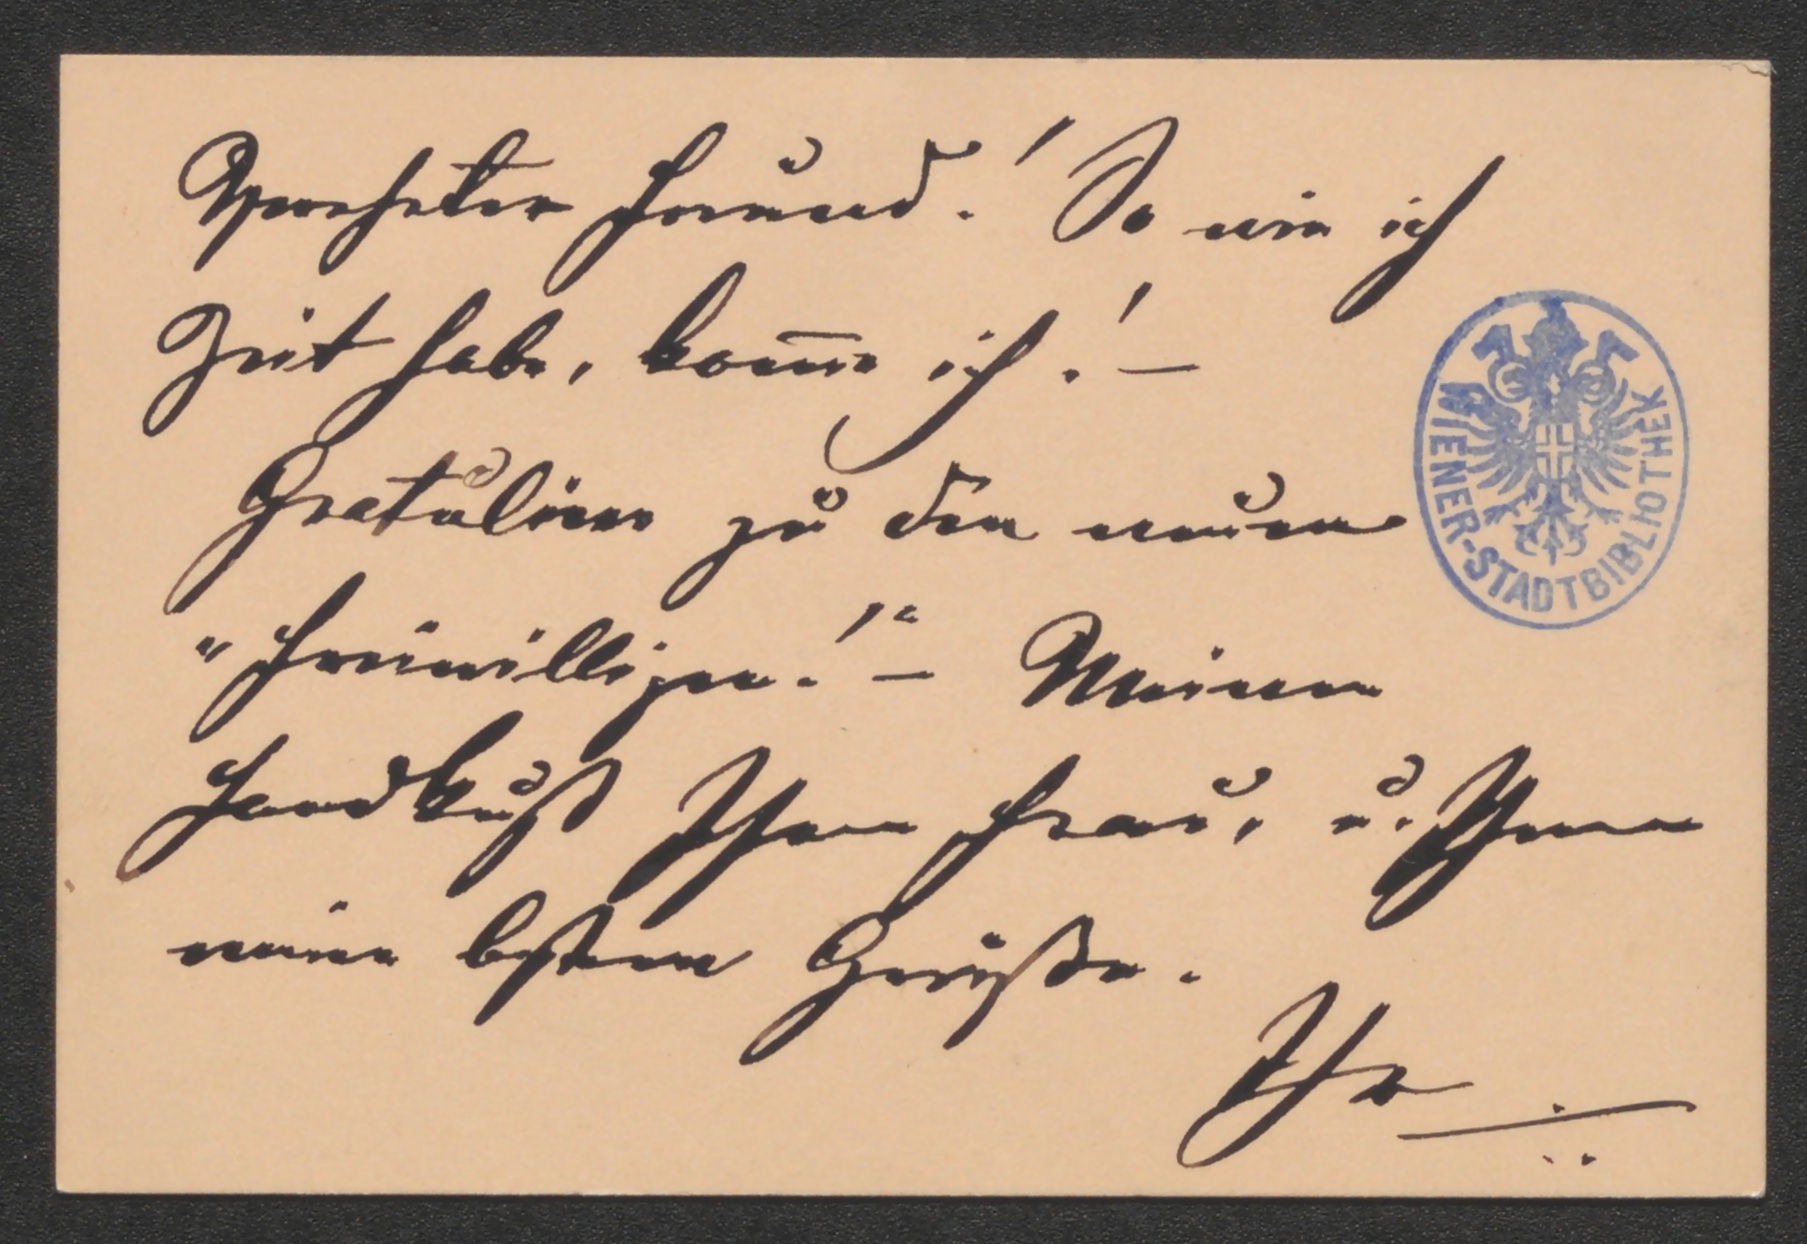 Verehrter Freund! So wie ich
Zeit habe, kom̅e ich! –
Gratuliere zu den neuen
"Freiwilligen!" – Meinen
Handkuß Ihrer Frau, u. Ihnen
meine besten Grüße.
Ihr
WIENER-STADTBIBLIOTHEK